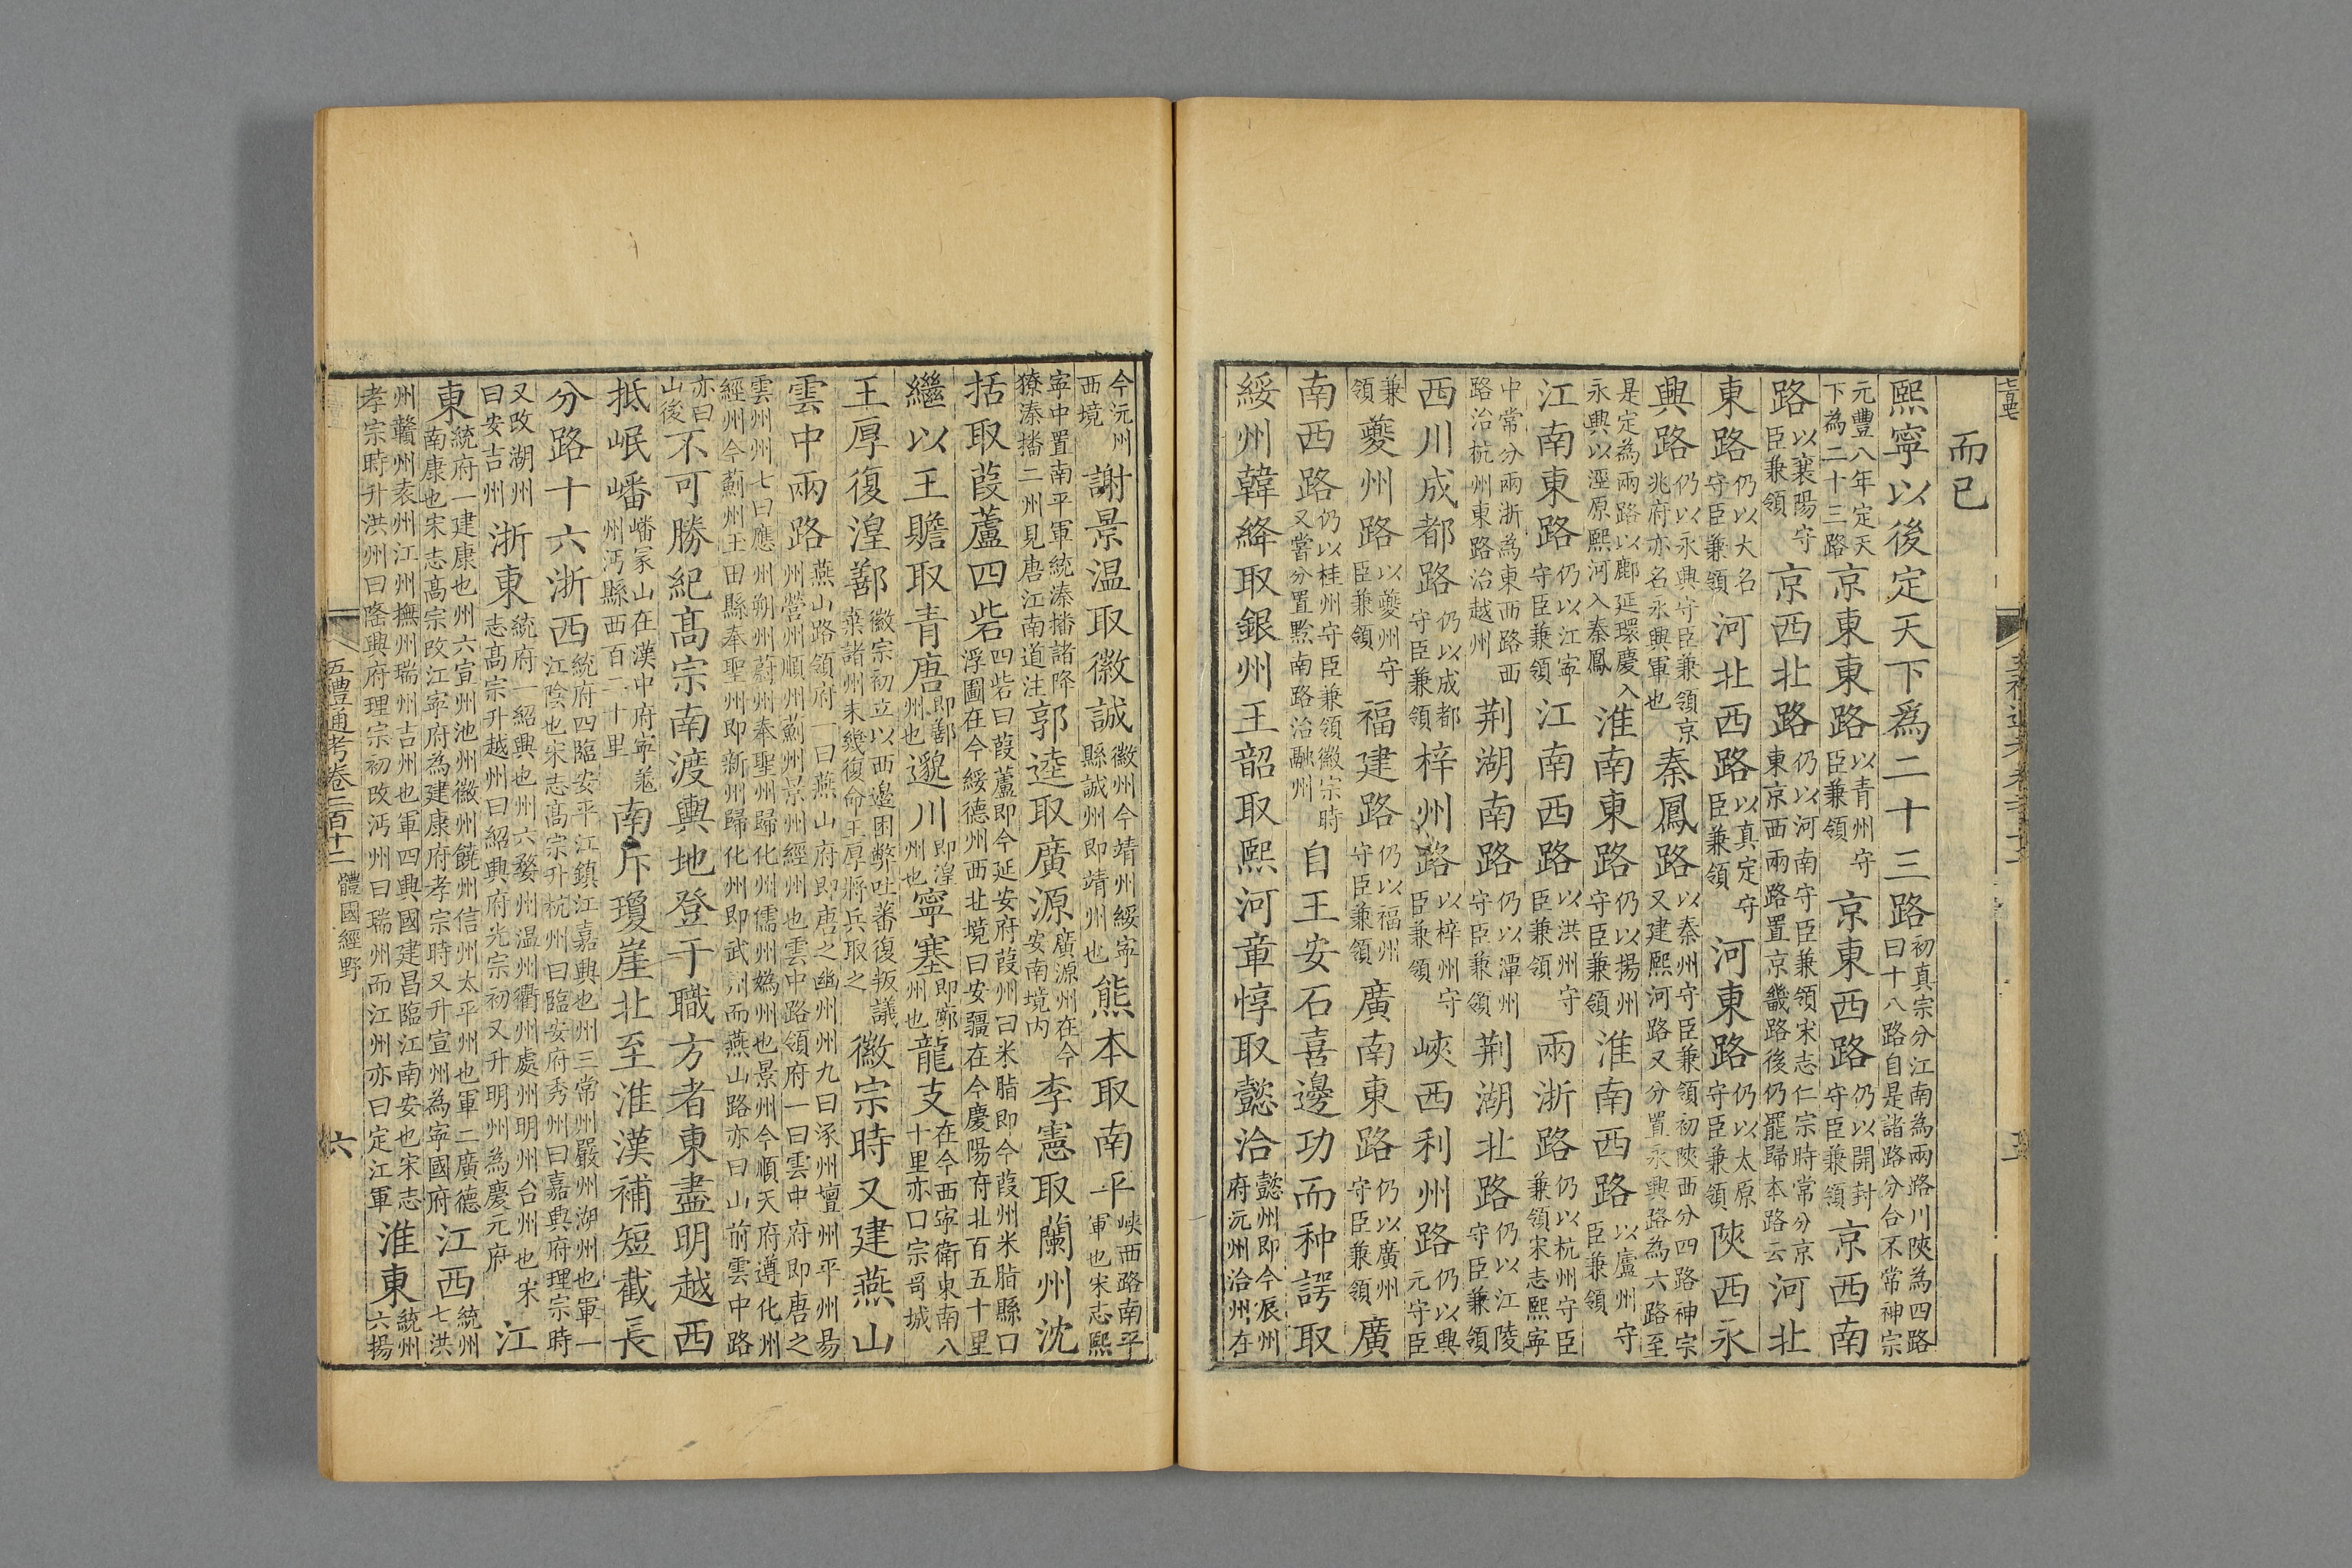 而已
熙寧以後定天下爲二十三路初真宗分江南為兩路川陜為四路曰十八路自是諸路分合不常神宗
元豐八年定天下為二十三路京東東路以青州守臣兼領京東西路仍以開封守臣兼領京西南
路以襄陽守臣兼領京西北路仍以河南守臣兼領宋志仁宗時常分京東京西兩路置京畿路後仍罷歸本路云河北
東路仍以大名守臣兼領河北西路以真定守臣兼領河東路仍以太原守臣兼領陜西永
興路仍以永興守臣兼領京兆府亦名永興軍也秦鳳路以秦州守臣兼領初陜西分四路神宗又建熙河路又分置永興路為六路至
是定為兩路以鄜延環慶入永興以涇原熙河入秦鳳淮南東路仍以揚州守臣兼領淮南西路以廬州守臣兼領
江南東路仍以江寧守臣兼領江南西路以洪州守臣兼領兩浙路仍以杭州守臣兼領宋志熙寧
中常分兩浙為東西路西路治杭州東路治越州荆湖南路仍以潭州守臣兼領荆湖北路仍以江陵守臣兼領
西川成都路仍以成都守臣兼領梓州路以梓州守臣兼領峽西利州路仍以興元守臣
兼領夔州路以夔州守臣兼領福建路仍以福州守臣兼領廣南東路仍以廣州守臣兼領廣
南西路仍以桂州守臣兼領徽宗時又嘗分置黔南路治融州自王安石喜邊功而种諤取
綏州韓絳取銀州王韶取熙河章惇取懿洽懿州即今辰州府沅州洽州在
今沅州西境謝景温取徽誠徽州今靖州綏寧縣誠州即靖州也熊本取南平峽西路南平軍也宋志熙
寧中置南平軍統溱播諸降獠溱播二州見唐江南道注郭逵取廣源廣源州在今安南境内李憲取蘭州沈
括取葭蘆四砦四砦曰葭蘆即今延安府葭州曰米脂即今葭州米脂縣曰浮圖在今綏德州西北境曰安疆在今慶陽府北百五十里
繼以王贍取青唐即鄯州也邈川即湟州也寧塞即廓州也龍支在今西寧衛東南八十里亦曰宗哥城
王厚復湟鄯徽宗初立以西邊困弊吐蕃復叛議棄諸州未幾復命王厚將兵取之徽宗時又建燕山
雲中兩路燕山路領府一曰燕山府即唐之幽州州九曰涿州壇州平州易州營州順州薊州景州經州也雲中路領府一曰雲中府即唐之
雲州州七曰應州朔州蔚州奉聖州歸化州儒州嬀州也景州今順天府遵化州經州今薊州玉田縣奉聖州即新州歸化州即武州而燕山路亦曰山前雲中路
亦曰山後不可勝紀髙宗南渡輿地登于職方者東盡明越西
抵岷嶓嶓冢山在漢中府寧羗州沔縣西百二十里南斥瓊崖北至淮漢補短截長
分路十六浙西統府四臨安平江鎮江嘉興也州三常州嚴州湖州也軍一江陰也宋志髙宗升杭州曰臨安府秀州曰嘉興府理宗時
又改湖州曰安吉州浙東統府一紹興也州六婺州温州衢州處州明州台州也宋志髙宗升越州曰紹興府光宗初又升明州為慶元府江
東統府一建康也州六宣州池州徽州饒州信州太平州也軍二廣德南康也宋志髙宗改江寧府為建康府孝宗時又升宣州為寧國府江西統州七洪
州贛州袁州江州撫州瑞州吉州也軍四興國建昌臨江南安也宋志孝宗時升洪州曰隆興府理宗初改沔州曰瑞州而江州亦曰定江軍淮東統州六揚
五禮通考卷二百十二 體國經野 六